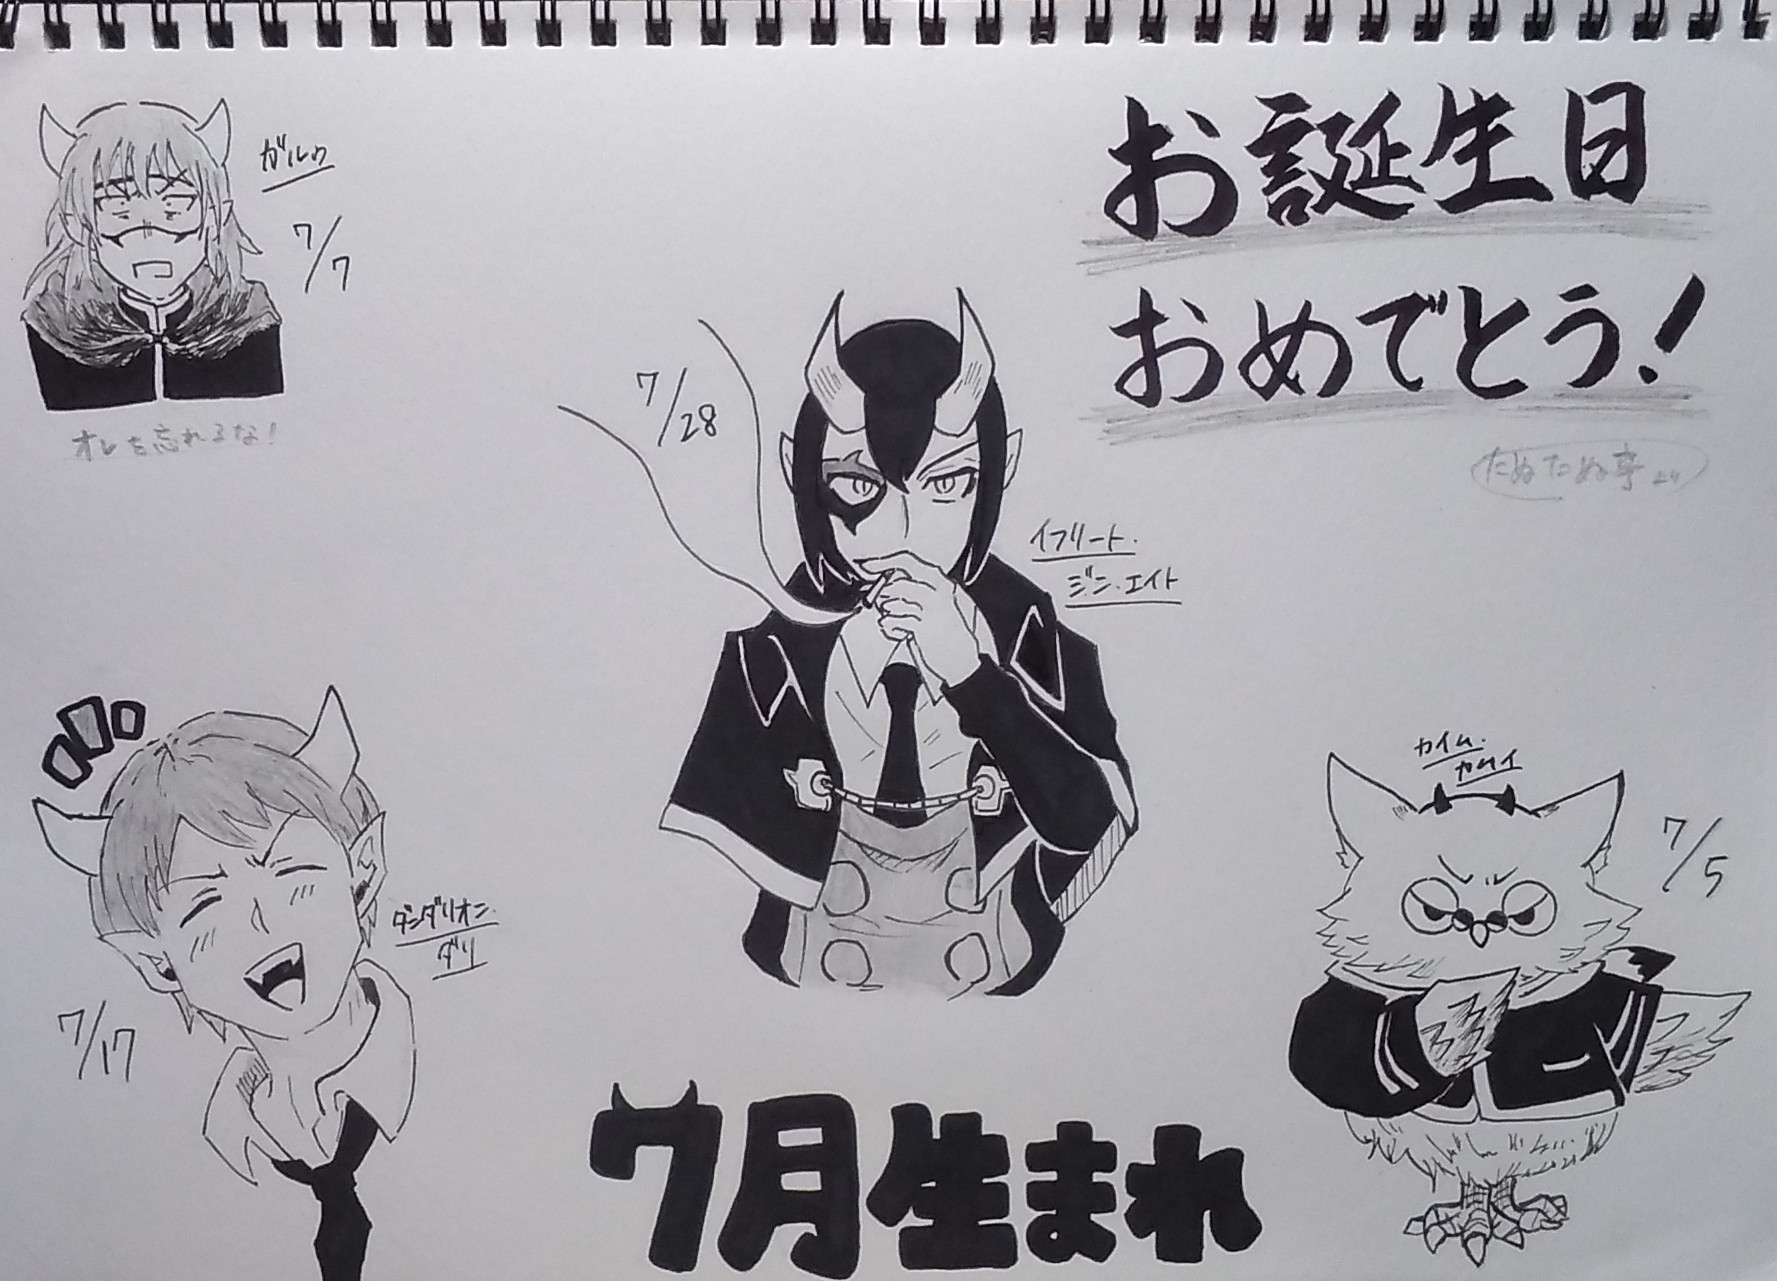 お誕生日
おめでとう!
たぬたぬ亭
ガルゥ
7/7
オレを忘れるな!
7/28
イフリート・
ジン・エイト
ダンダリオン・
ダリ
7/17
カイム・
カムイ
7/5
7月生まれ